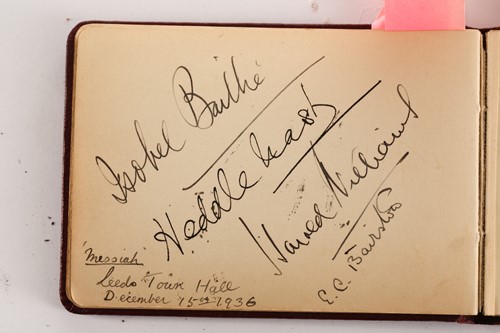 Isobel Baillie
Heddle Nash
Harold Williams
E. C. Bairstow
"Messiah"
Leeds Town Hall
December 15th 1936